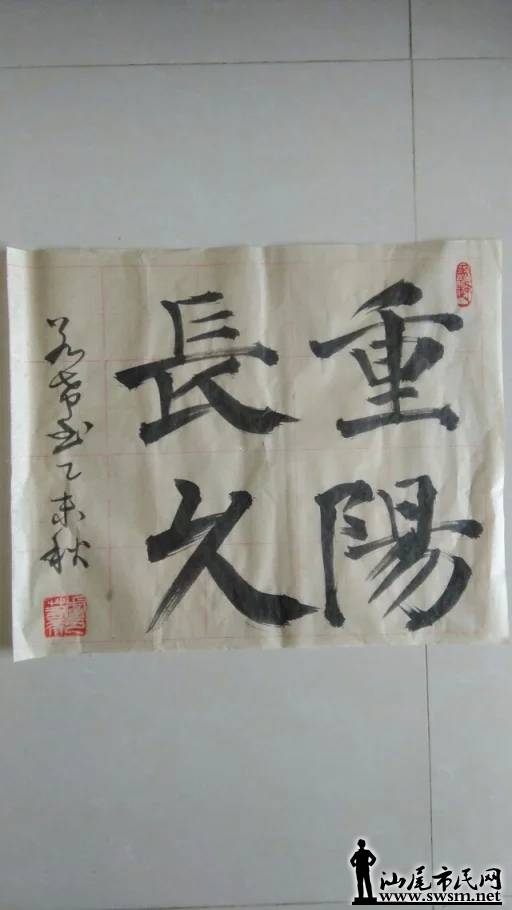 重陽
長久
若希書乙未秋
汕尾市民网
www.swsm.net